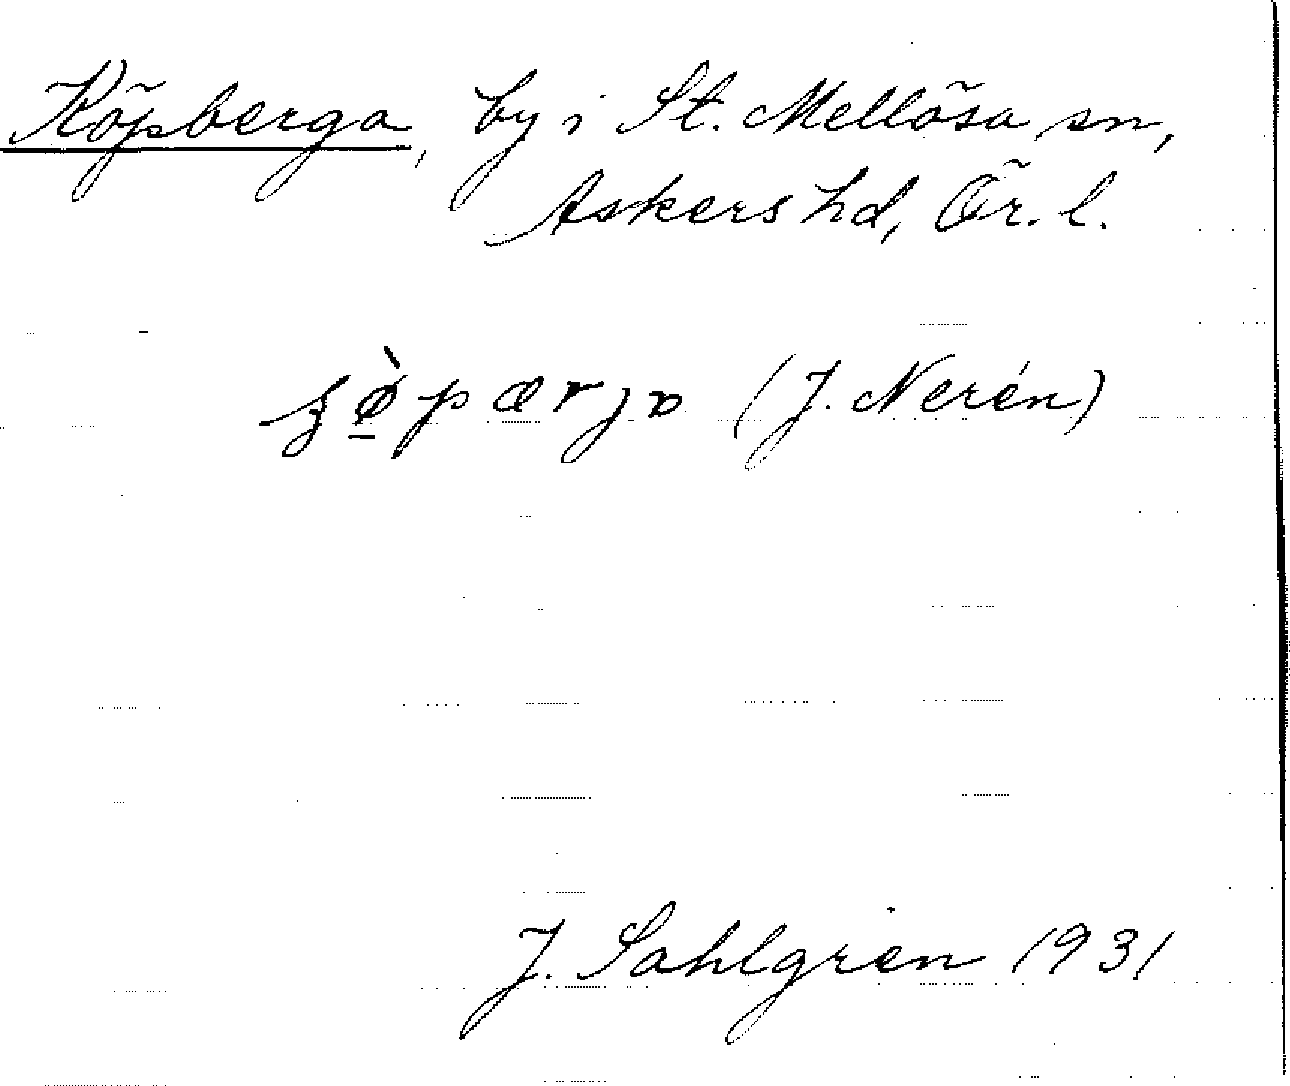 Köpberga, by i St. Mellösa sn,
Askers hd, Ör. l.
(J. Nerén)
J. Sahlgren 1931